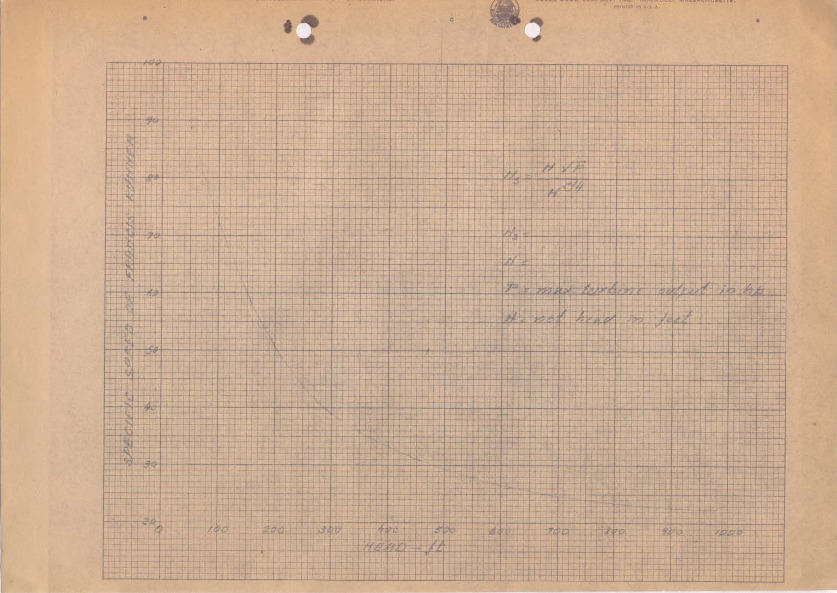 PRINTED IN U.S.A.
100
90
80
70
60
50
40
30
20
SPECIFIC SPEED OF FRANCIS RUNNER
Ns = N √P
H^5/4
Ns =
N =
P = max turbine output in hp
H = net head in feet
0 100 200 300 400 500 600 700 800 900 1000
HEAD - ft